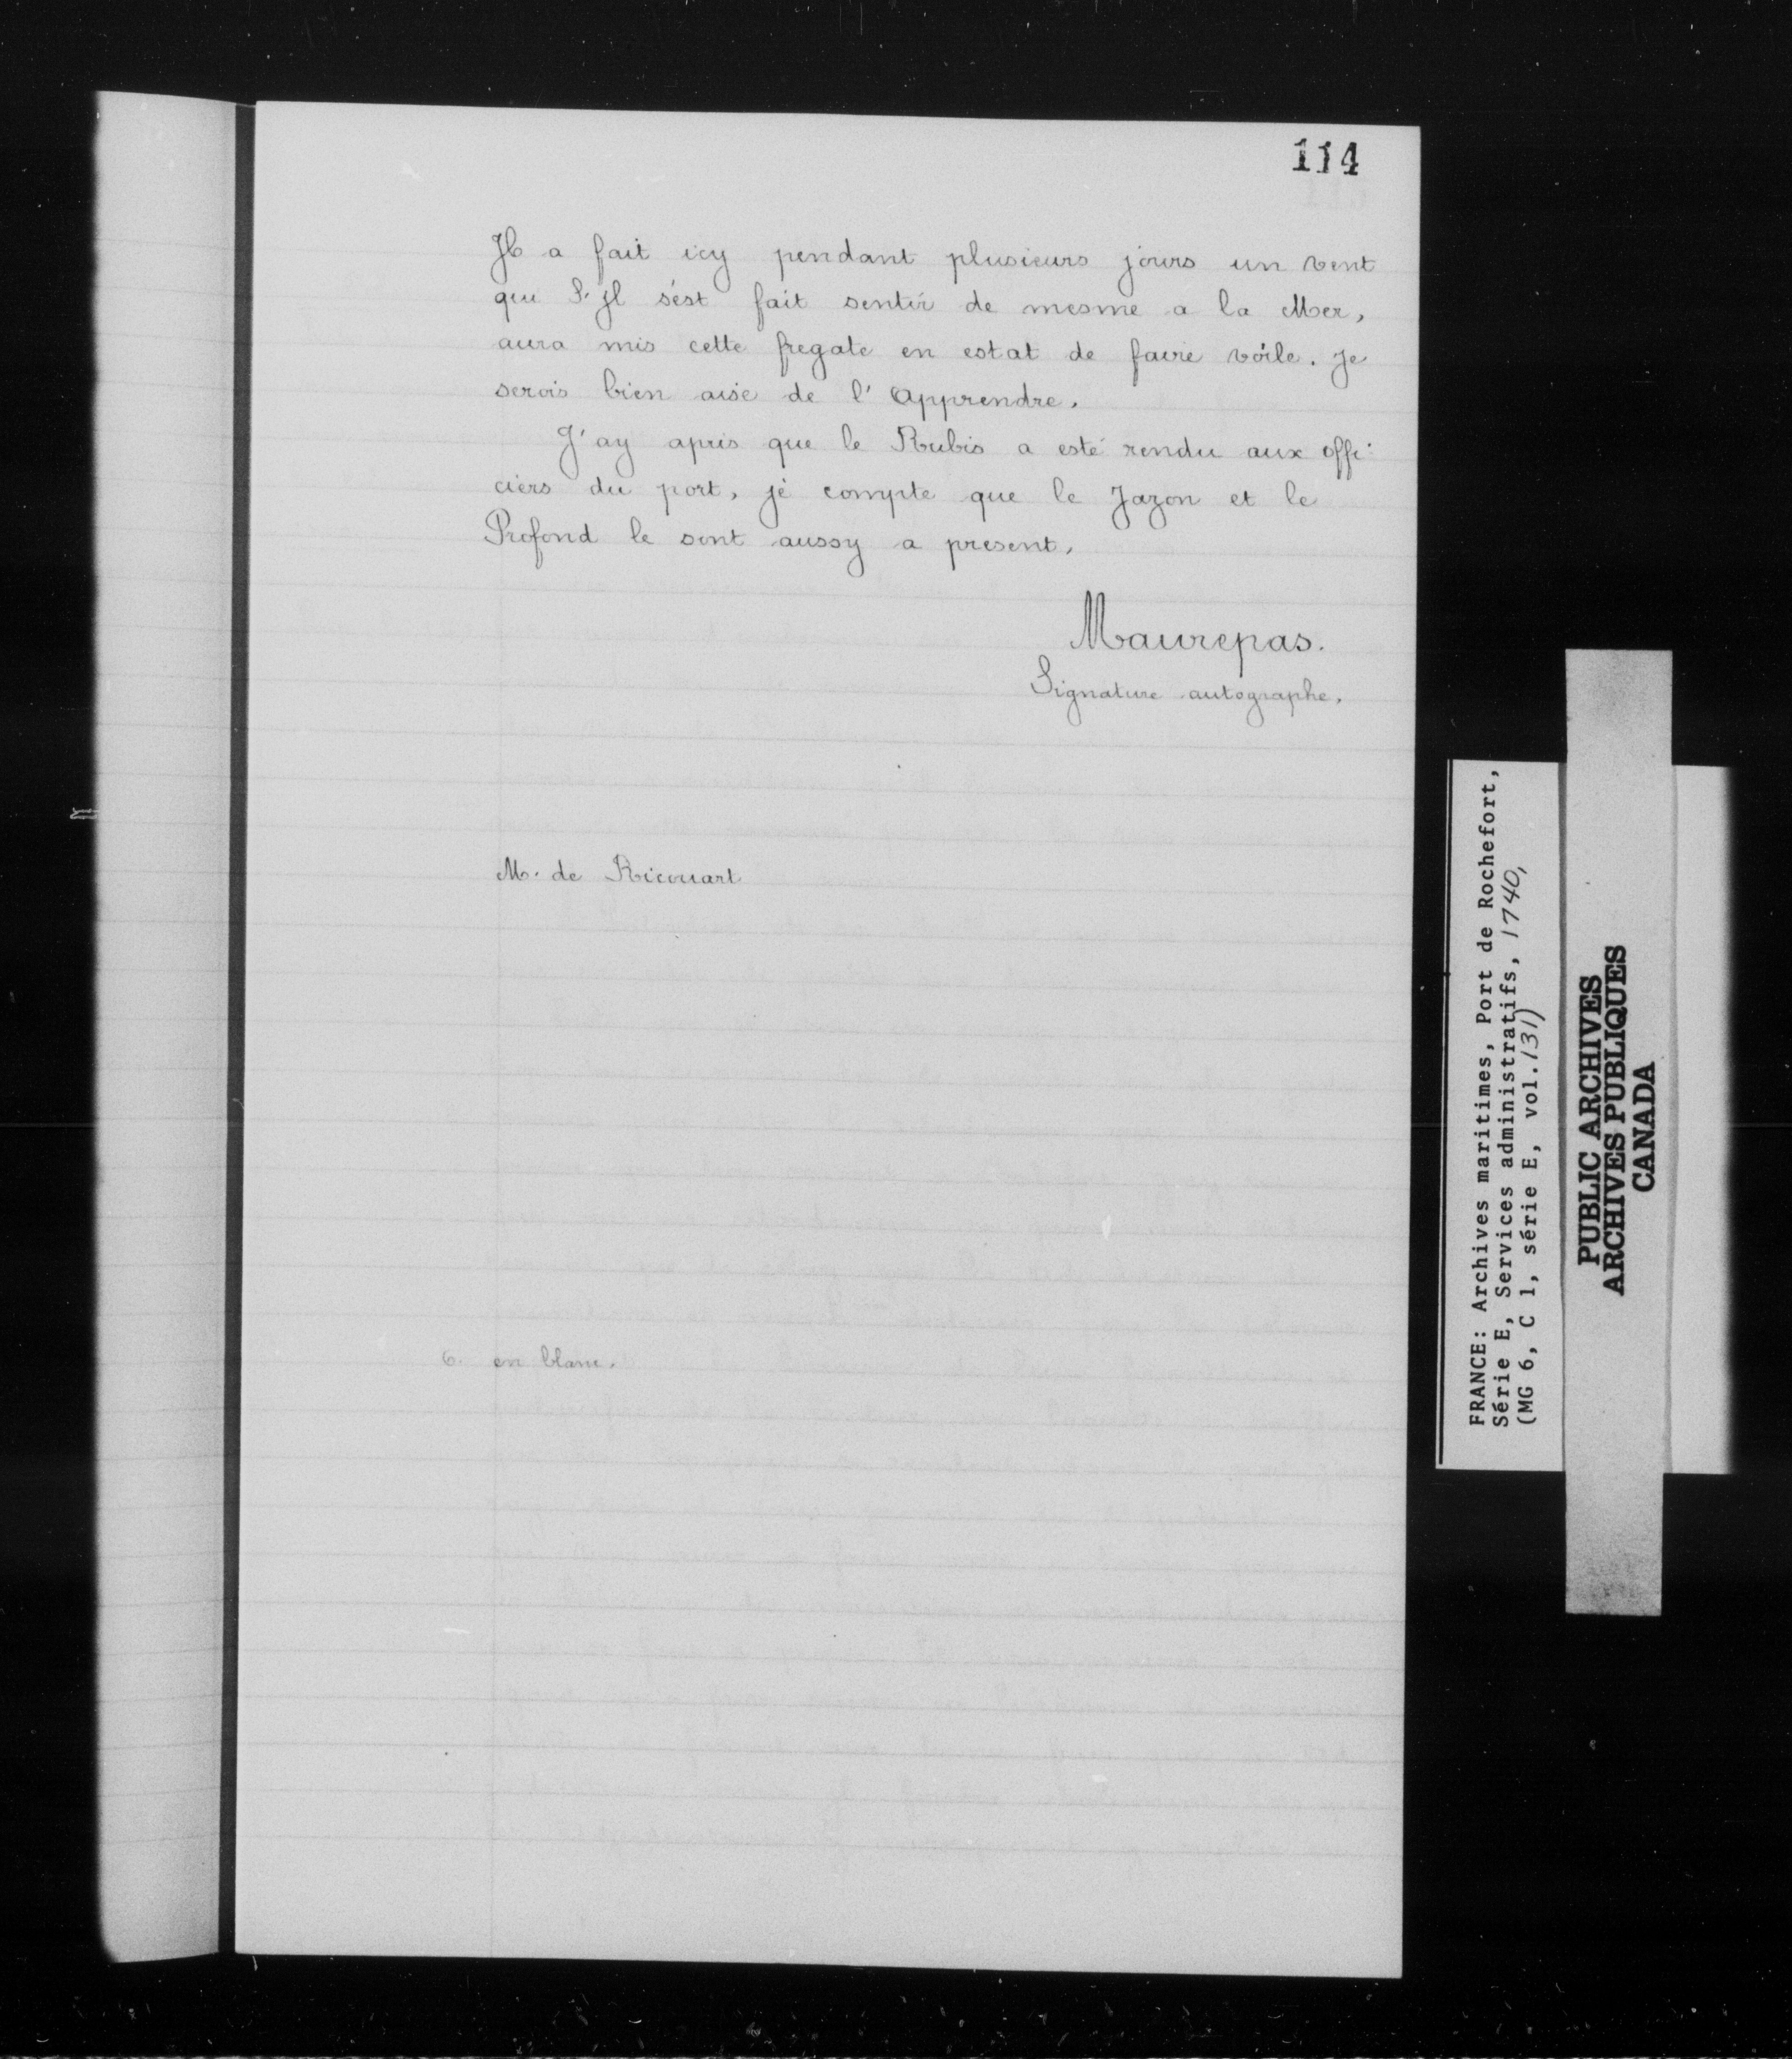 114
Il a fait icy pendant plusieurs jours un vent
que S'Il s'est fait sentir de mesme a la Mer,
aura mis cette fregate en estat de faire voile. Je
serois bien aise de l'Apprendre.
J'ay apris que le Rubis a esté rendu aux offi-
ciers du port, je compte que le Jazon et le
Profond le sont aussy a present.
Maurepas.
Signature autographe.
M. de Ricouart
6. en blanc.
FRANCE: Archives maritimes, Port de Rochefort,
Série E, Services administratifs, 1740,
(MG 6, C 1, série E, vol. 131)
PUBLIC ARCHIVES
ARCHIVES PUBLIQUES
CANADA